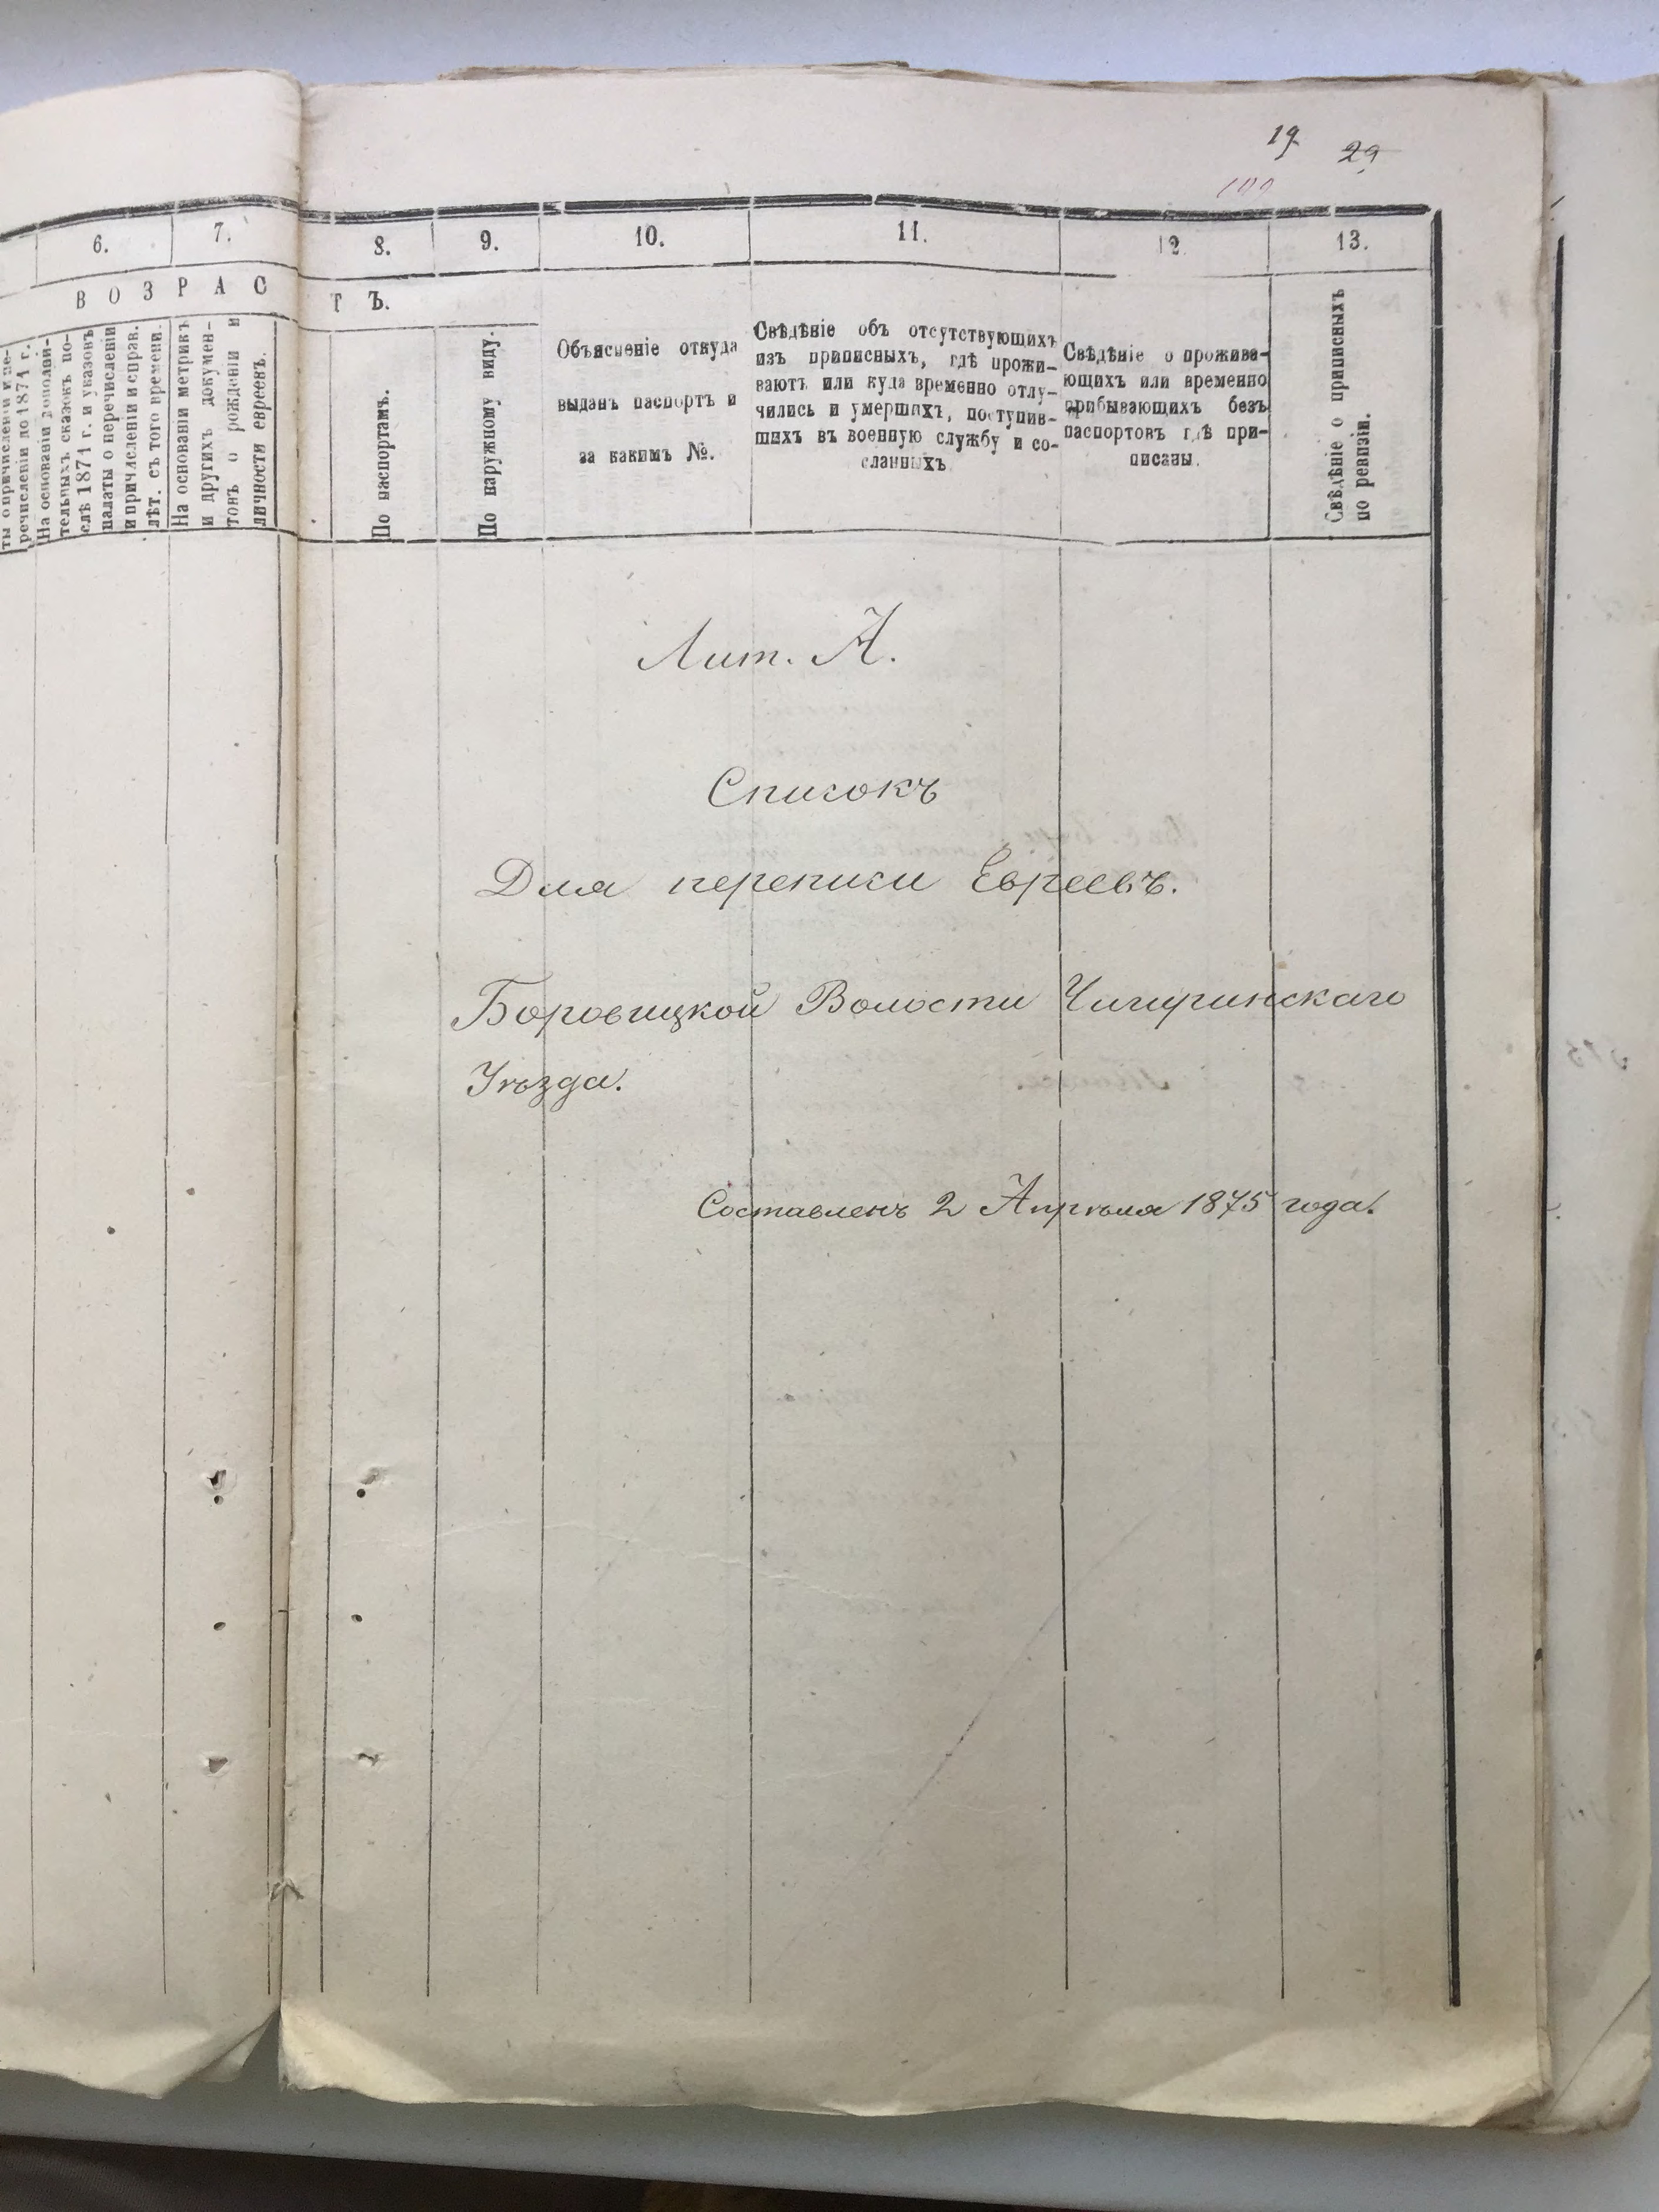 19 29
6. 7. 8. 9. 10. 11. 12. 13.
ВОЗРАСТЪ.
ты о причисленіи и пе-
речисленіи до 1874 г.
На основаніи дополни-
тельныхъ сказокъ по-
слѣ 1874 г. и указовъ
палаты о перечисленіи
и причисленіи и справ.
лѣт. съ того времени.
На основаніи метрикъ
и другихъ докумен-
товъ о рожденіи и
личности евреевъ.
По паспортамъ.
По наружному виду.
Объясненіе откуда
выданъ паспортъ и
за какимъ №.
Свѣдѣніе объ отсутствующихъ
изъ приписныхъ, гдѣ прожи-
ваютъ или куда временно отлу-
чились и умершихъ, поступив-
шихъ въ военную службу и со-
сланныхъ
Свѣдѣніе о прожива-
ющихъ или временно
прибывающихъ безъ
паспортовъ гдѣ при-
писаны.
Свѣдѣніе о приписныхъ
по ревизіи.
Лит. А.
Списокъ
Для переписи Евреевъ.
Боровицкой Волости Чигиринскаго
Уѣзда.
Составленъ 2 Апрѣля 1875 года.